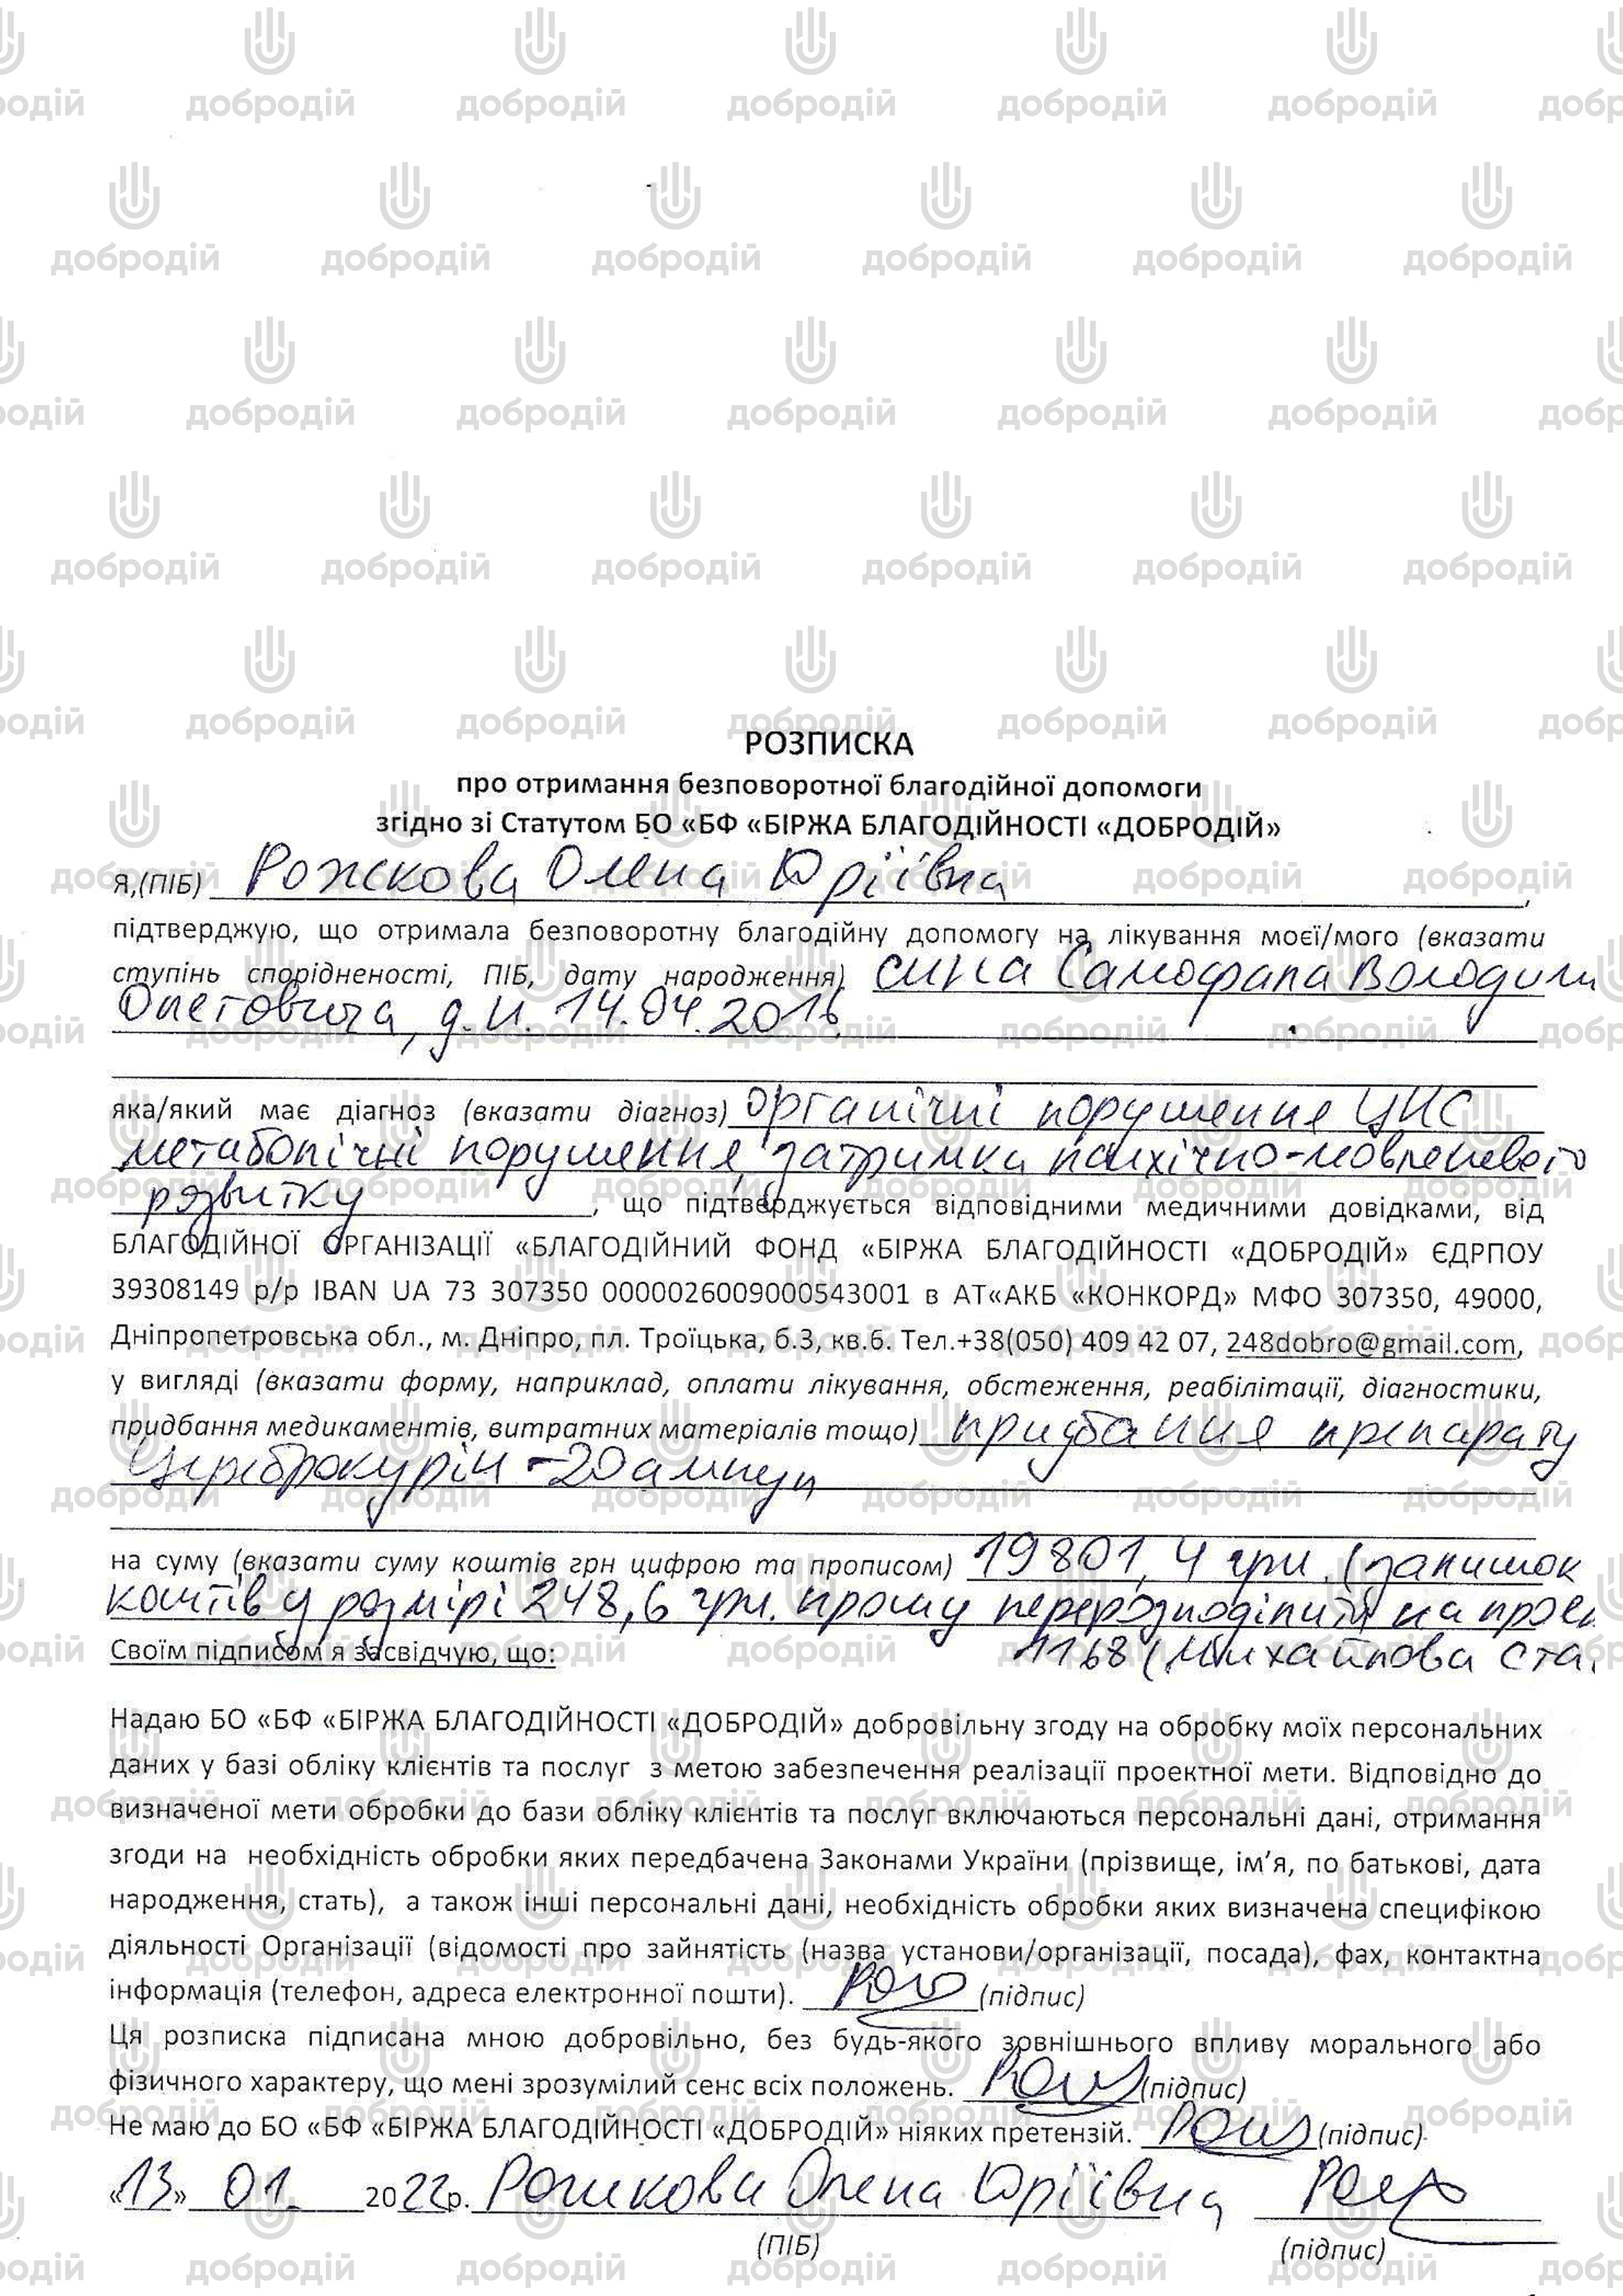 РОЗПИСКА
про отримання безповоротної благодійної допомоги
згідно зі Статутом БО «БФ «БІРЖА БЛАГОДІЙНОСТІ «ДОБРОДІЙ»
Я,(ПІБ) Рожкова Олена Юріївна,
підтверджую, що отримала безповоротну благодійну допомогу на лікування моєї/мого (вказати
ступінь спорідненості, ПІБ, дату народження) сина Самофала Володими
Олеговича, д.н. 14.04.2016
яка/який має діагноз (вказати діагноз) органічні порушення ЦНС
метаболічні порушення, затримка психічно-мовленевого
розвитку, що підтверджується відповідними медичними довідками, від
БЛАГОДІЙНОЇ ОРГАНІЗАЦІЇ «БЛАГОДІЙНИЙ ФОНД «БІРЖА БЛАГОДІЙНОСТІ «ДОБРОДІЙ» ЄДРПОУ
39308149 р/р IBAN UA 73 307350 0000026009000543001 в АТ«АКБ «КОНКОРД» МФО 307350, 49000,
Дніпропетровська обл., м. Дніпро, пл. Троїцька, б.3, кв.6. Тел.+38(050) 409 42 07, 248dobro@gmail.com,
у вигляді (вказати форму, наприклад, оплати лікування, обстеження, реабілітації, діагностики,
придбання медикаментів, витратних матеріалів тощо) придбання препарату
Цереброкурін -20 ампул
на суму (вказати суму коштів грн цифрою та прописом) 19801,4 грн. (залишок
коштів у розмірі 248,6 грн. прошу перерозподілити на проек
1168 (Михайлова Ста
Своїм підписом я засвідчую, що:
Надаю БО «БФ «БІРЖА БЛАГОДІЙНОСТІ «ДОБРОДІЙ» добровільну згоду на обробку моїх персональних
даних у базі обліку клієнтів та послуг з метою забезпечення реалізації проектної мети. Відповідно до
визначеної мети обробки до бази обліку клієнтів та послуг включаються персональні дані, отримання
згоди на необхідність обробки яких передбачена Законами України (прізвище, ім’я, по батькові, дата
народження, стать), а також інші персональні дані, необхідність обробки яких визначена специфікою
діяльності Організації (відомості про зайнятість (назва установи/організації, посада), фах, контактна
інформація (телефон, адреса електронної пошти). (підпис)
Ця розписка підписана мною добровільно, без будь-якого зовнішнього впливу морального або
фізичного характеру, що мені зрозумілий сенс всіх положень. (підпис)
Не маю до БО «БФ «БІРЖА БЛАГОДІЙНОСТІ «ДОБРОДІЙ» ніяких претензій. (підпис)
«13» 01. 2022р. Рожкова Олена Юріївна
(ПІБ) (підпис)